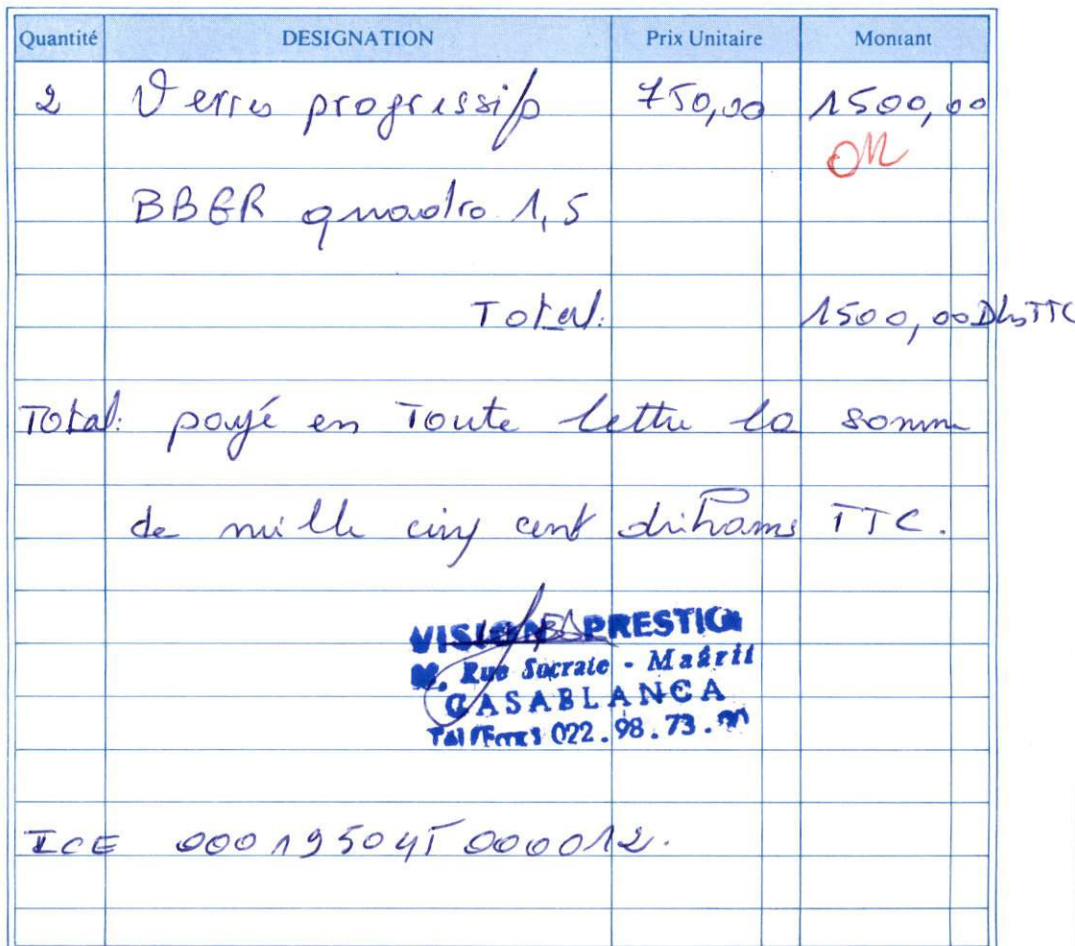 Quantité DESIGNATION Prix Unitaire Montant
2 Verres progressifs 750,00 1500,00
BBGR quadro 1,5
Total: 1500,00 Dhs TTC
Total: payé en Toute lettre la somme
de mille cinq cent dirhams TTC.
VISION PRESTIG
Rue Socrate - Maârif
CASABLANCA
Tél/Fax: 022.98.73.
ICE 000195045000012.